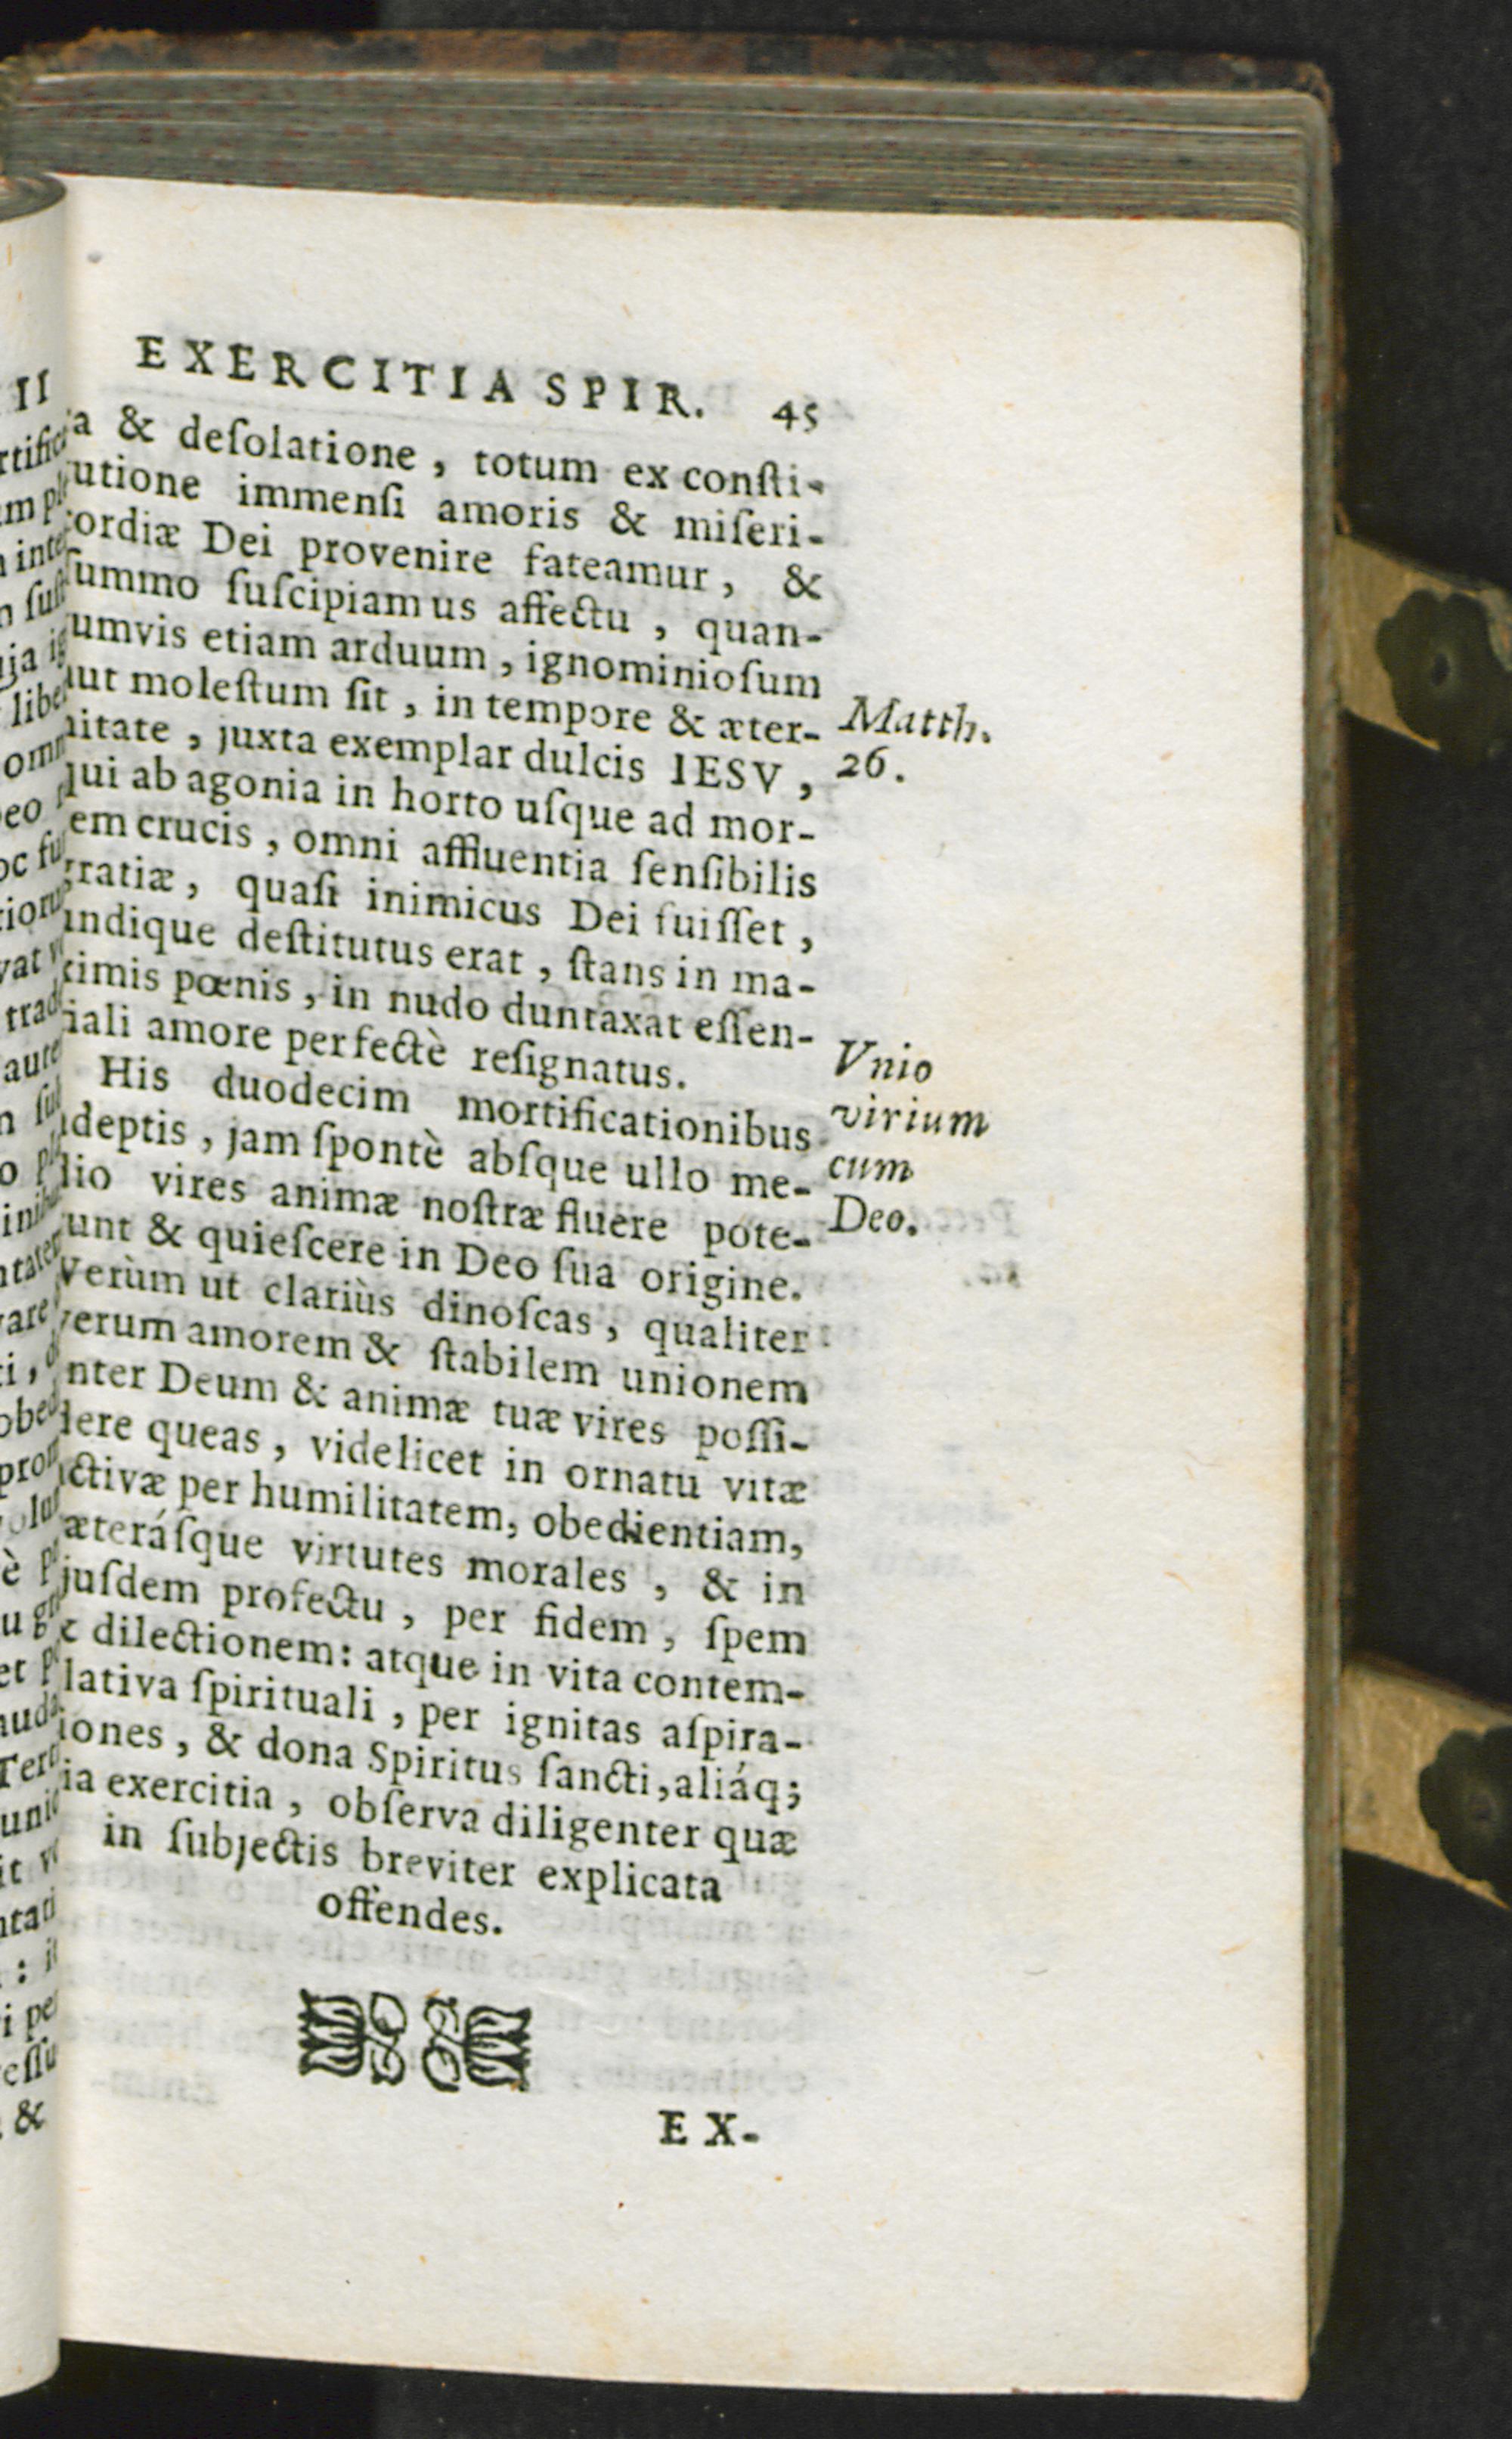 EXERCITIA SPIR. 45
a & deſolatione, totum ex conſti-
utione immenſi amoris & miſeri-
cordiæ Dei provenire fateamur, &
ſummo ſuſcipiamus affectu, quan-
umvis etiam arduum, ignominioſum
aut moleſtum ſit, in tempore & æter-
nitate, juxta exemplar dulcis IESV,
qui ab agonia in horto uſque ad mor-
em crucis, omni affluentia ſenſibilis
gratiæ, quaſi inimicus Dei fuiſſet,
undique deſtitutus erat, ſtans in ma-
ximis pœnis, in nudo duntaxat eſſen-
iali amore perfectè reſignatus.
His duodecim mortificationibus
adeptis, jam ſpontè abſque ullo me-
dio vires animæ noſtræ fluere pote-
runt & quieſcere in Deo ſua origine.
Verùm ut clariùs dinoſcas, qualiter
verum amorem & ſtabilem unionem
inter Deum & animæ tuæ vires poſſi-
dere queas, videlicet in ornatu vitæ
activæ per humilitatem, obedientiam,
æteráſque virtutes morales, & in
ejuſdem profectu, per fidem, ſpem
& dilectionem: atque in vita contem-
lativa ſpirituali, per ignitas aſpira-
iones, & dona Spiritus ſancti, aliáq;
ia exercitia, obſerva diligenter quæ
in ſubjectis breviter explicata
offendes.
EX-
Matth.
26.
Vnio
virium
cum
Deo.